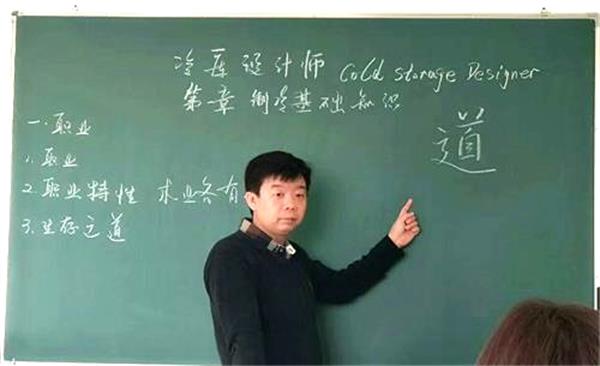 冷库设计师 Cold Storage Designer
第一章 制冷基础知识
道
一.职业
1.职业
2.职业特性 术业各有
3.生存之道